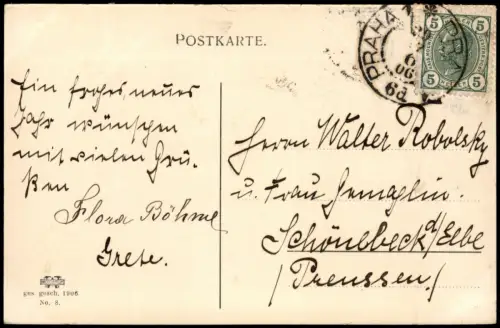 POSTKARTE.
PRAHA
5 5
5 5
Ein frohes, neues
Jahr wünschen
mit vielen Grü-
ßen
Flora Böhme
Grete.
ges. gesch. 1906
No. 8.
Herrn Walter Robolsky
u. Frau Gemaglin.
Schönebeck a/Elbe
(Preussen.)